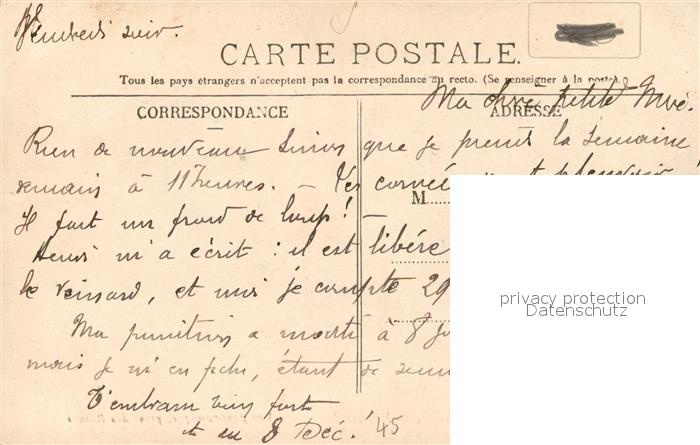 Vendredi soir.
CARTE POSTALE.
Tous les pays étrangers n'acceptent pas la correspondance au recto. (Se renseigner à la poste).
Ma petite
CORRESPONDANCE
ADRESSE
Rien de nouveau sinon que je prends la semaine
demain à 11 heures. –
M
Il fait un froid de loup! –
Henri m'a écrit : il est libéré
le veinard, et moi je compte 29
Ma punition a monté à 8
mais je m'en fiche, étant de
T'embrasse bien fort
8 Déc.!
45
privacy protection
Datenschutz